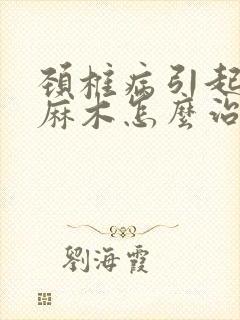 頚椎病引起
麻木怎麼治
劉海霞